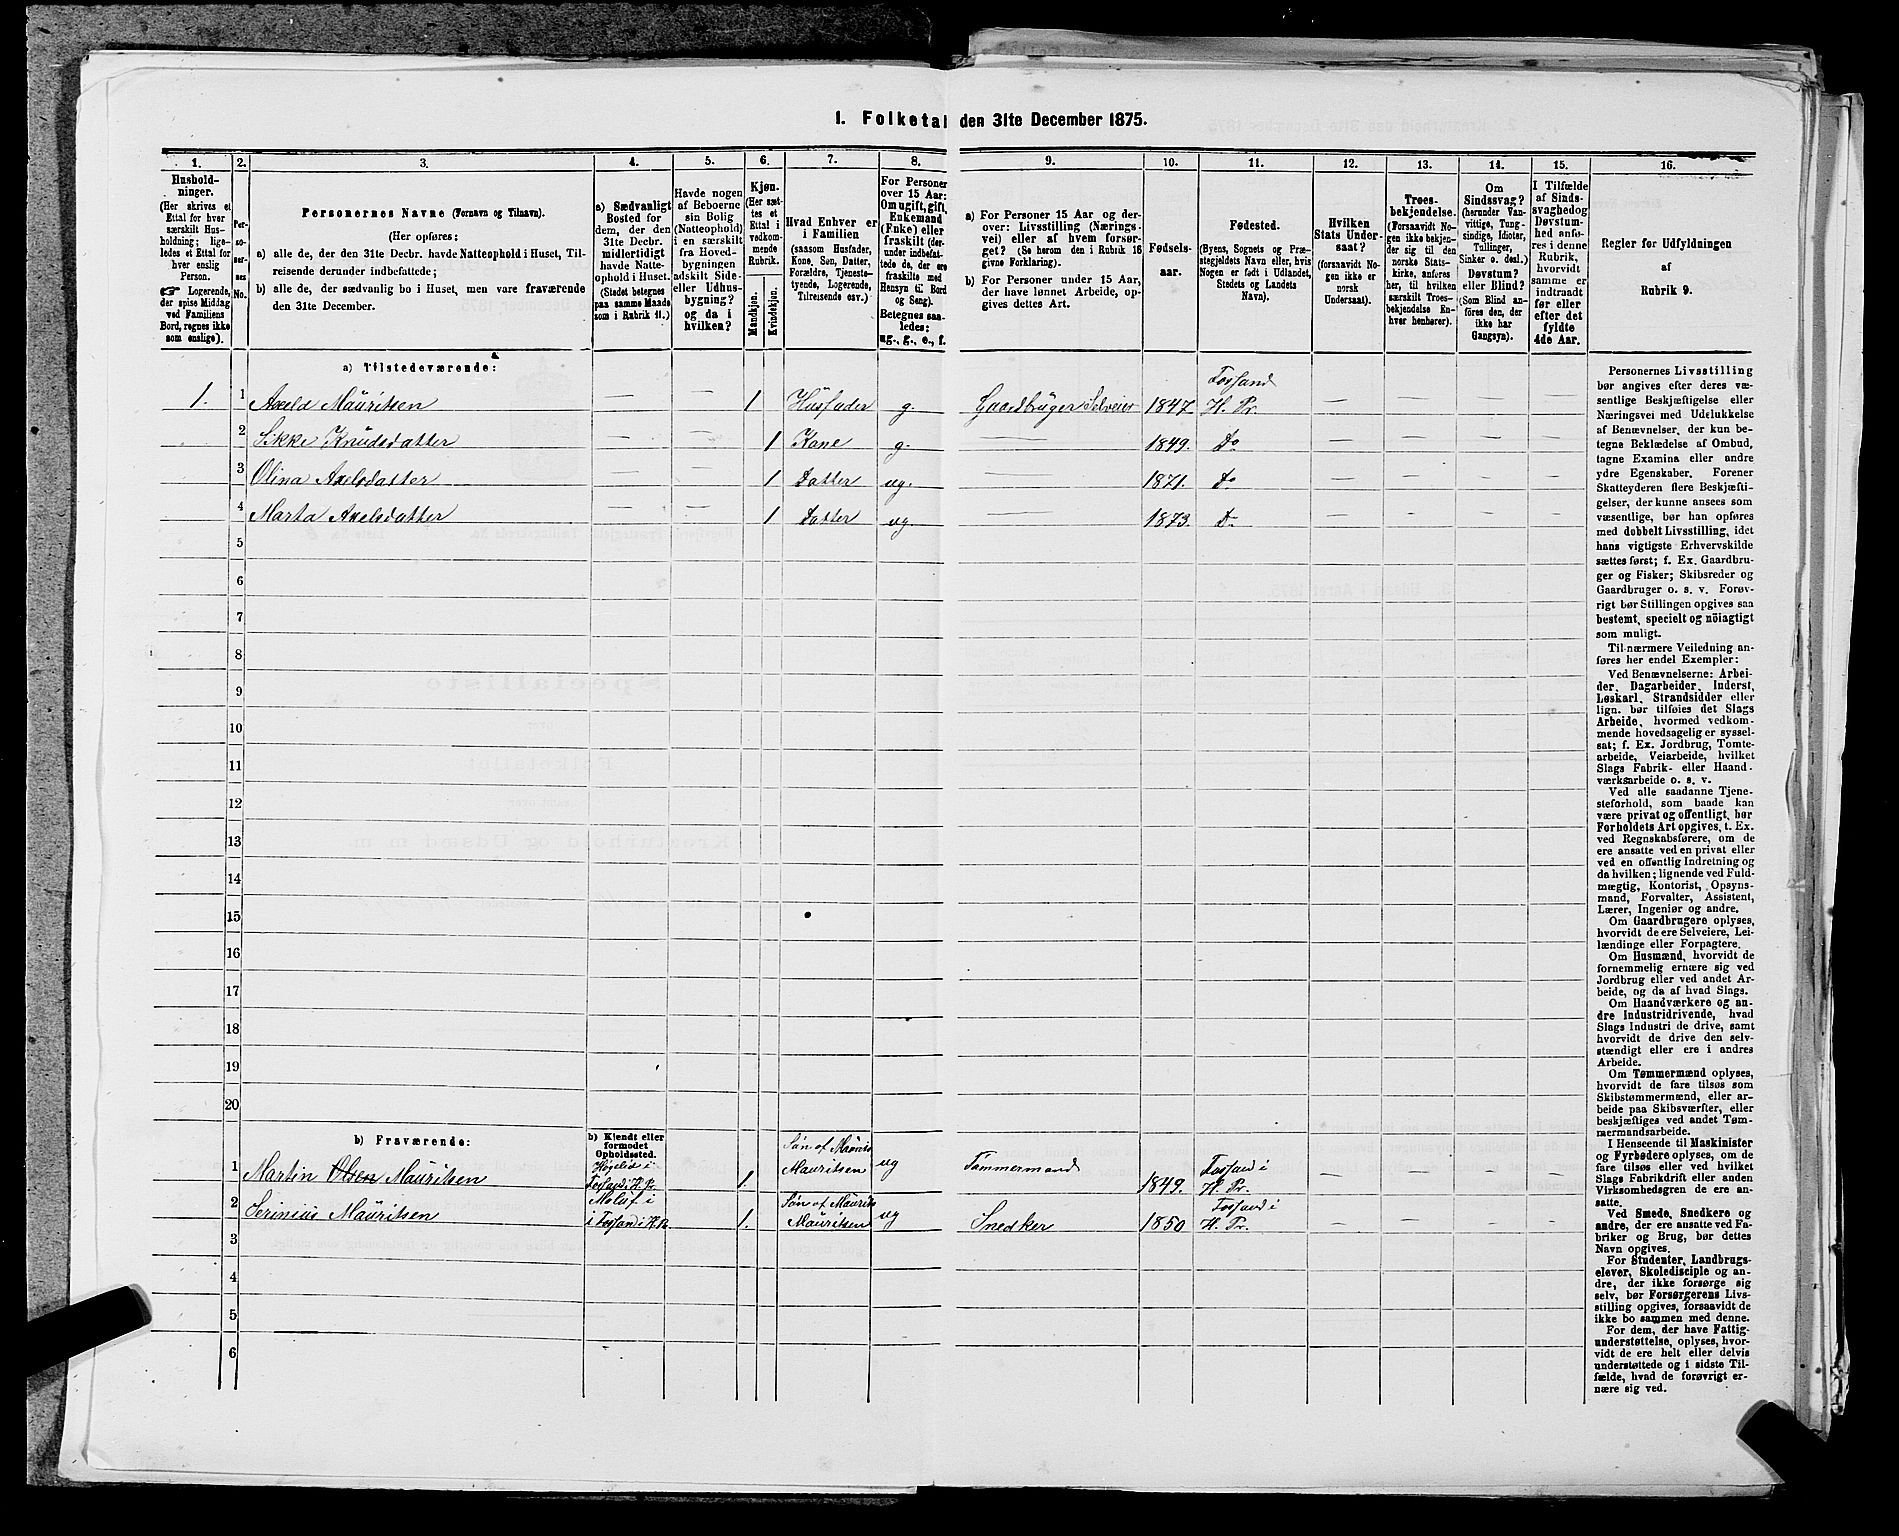 1. Folketal den 31te December 1875.
1. 2. 3. 4. 5. 6. 7. 8. 9. 10. 11. 12. 13. 14. 15. 16.
Hushold-
ninger.
(Her skrives et
Ettal for hver
særskilt Hus-
holdning; lige-
ledes et Ettal for
hver enslig
Person.
☞ Logerende,
der spise Middag
ved Familiens
Bord, regnes ikke
som enslige).
Per-
so-
ner-
nes
No.
Personernes Navne (Fornavn og Tilnavn).
(Her opføres:
a) alle de, der den 31te Decbr. havde Natteophold i Huset, Til-
reisende derunder indbefattede;
b) alle de, der sædvanlig bo i Huset, men vare fraværende
den 31te December.
a) Sædvanligt
Bosted for
dem, der den
31te Decbr.
midlertidigt
havde Natte-
ophold i Huset.
(Stedet betegnes
paa samme Maade
som i Rubrik 11.)
Havde nogen
af Beboerne
sin Bolig
(Natteophold)
i en særskilt
fra Hoved-
bygningen
adskilt Side-
eller Udhus-
bygning?
og da i
hvilken?
Kjøn.
(Her sæt-
tes et
Ettal i
vedkom-
mende
Rubrik.
Mandkjøn.
Kvindekjøn.
Hvad Enhver er
i Familien
(saasom Husfader,
Kone, Søn, Datter,
Forældre, Tjeneste-
tyende, Logerende,
Tilreisende osv.)
For Personer
over 15 Aar:
Om ugift, gift,
Enkemand
(Enke) eller
fraskilt (der-
under indbefat-
tede de, der ere
fraskilte med
Hensyn til Bord
og Seng).
Betegnes saa-
ledes:
ug., g., e., f.
a) For Personer 15 Aar og der-
over: Livsstilling (Nærings-
vei) eller af hvem forsør-
get (Se herom den i Rubrik 16
givne Forklaring).
b) For Personer under 15 Aar,
der have lønnet Arbeide, op-
gives dettes Art.
Fødsels-
aar.
Fødested.
(Byens, Sognets og Præ-
stegjeldets Navn eller, hvis
Nogen er født i Udlandet,
Stedets og Landets
Navn).
Hvilken
Stats Under-
saat?
(forsaavidt No-
gen ikke er
norsk
Undersaat).
Troes-
bekjendelse.
(Forsaavidt No-
gen ikke bekjen-
der sig til den
norske Stats-
kirke, anføres
her, til hvilken
særskilt Troes-
bekjendelse En-
hver henhører).
Om
Sindssvag?
(herunder Van-
vittige, Tung-
sindige, Idioter,
Tullinger,
Sinker o. desl.)
Døvstum?
eller Blind?
(Som Blind an-
føres den, der
ikke har
Gangsyn).
I Tilfælde
af Sinds-
svaghed og
Døvstum-
hed anfø-
res i denne
Rubrik,
hvorvidt
samme er
indtraadt
før eller
efter det
fyldte
4de Aar.
Regler for Udfyldningen
af
Rubrik 9.
a) Tilstedeværende:
1. 1 Axeld Mauritsen — — 1 Husfader g. Gaardbruger Selveier 1847 Fossand H. Pr. — — — —
2 Sikke Knudsdatter — — 1 Kone g. — 1849. Do — — — —
3 Olina Axelsdatter — — 1 Datter ug. — 1871. Do — — — —
4 Marta Axelsdatter — — 1 Datter ug — 1873. Do — — — —
5
6
7
8
9
10
11
12
13
14
15
16
17
18
19
20
b) Fraværende:
b) Kjendt eller
formodet
Opholdssted.
1 Martin Olsen Mauritsen Høgelid i Fossand i H. Pr. 1. Søn af Maurits Mauritsen ug Tømmermand 1849. Fossand i H. Pr. — — — —
2 Serinius Mauritsen i Fossand i H. Pr. 1. Søn af Maurits Mauritsen ug Snedker 1850 Fossand i H. Pr. — — — —
3
4
5
6
Personernes Livsstilling
bør angives efter deres væ-
sentlige Beskjæftigelse eller
Næringsvei med Udelukkelse
af Benævnelser, der kun be-
tegne Beklædelse af Ombud,
tagne Examina eller andre
ydre Egenskaber. Forener
Skatteyderen flere Beskjæfti-
gelser, der kunne ansees som
væsentlige, bør han opføres
med dobbelt Livsstilling, idet
hans vigtigste Erhvervskilde
sættes først; f. Ex. Gaardbru-
ger og Fisker; Skibsreder og
Gaardbruger o. s. v. Forøv-
rigt bør Stillingen opgives saa
bestemt, specielt og nöiagtigt
som muligt.
Til nærmere Veiledning an-
føres her endel Exempler:
Ved Benævnelserne: Arbei-
der, Dagarbeider, Inderst,
Løskarl, Strandsidder eller
lign. bør tilføies det Slags
Arbeide, hvormed vedkom-
mende hovedsagelig er syssel-
sat; f. Ex. Jordbrug, Tomte-
arbeide, Veiarbeide, hvilket
Slags Fabrik- eller Haand-
værksarbeide o. s. v.
Ved alle saadanne Tjene-
steforhold, som baade kan
være privat og offentligt, bør
Forholdets Art opgives, t. Ex.
ved Regnskabsførere, om de
ere ansatte ved en privat eller
ved en offentlig Indretning og
da hvilken; lignende ved Fuld-
mægtig, Kontorist, Opsyns-
mand, Forvalter, Assistent,
Lærer, Ingeniør og andre.
Om Gaardbrugere oplyses,
hvorvidt de ere Selveiere, Lei-
lændinge eller Forpagtere.
Om Husmænd, hvorvidt de
fornemmelig ernære sig ved
Jordbrug eller ved andet Ar-
beide, og da af hvad Slags.
Om Haandværkere og an-
dre Industridrivende, hvad
Slags Industri de drive, samt
hvorvidt de drive den selv-
stændigt eller ere i andres
Arbeide.
Om Tømmermænd oplyses,
hvorvidt de fare tilsøs som
Skibstømmermænd, eller ar-
beide paa Skibsværfter, eller
beskjæftiges ved andet Tøm-
mermandsarbeide.
I Henseende til Maskinister
og Fyrbødere oplyses, om de
fare tilsøs eller ved hvilket
Slags Fabrikdrift eller anden
Virksomhedsgren de ere an-
satte.
Ved Smede, Snedkere og
andre, der ere ansatte ved Fa-
briker og Brug, bør dettes
Navn opgives.
For Studenter, Landbrugs-
elever, Skoledisciple og an-
dre, der ikke forsørge sig
selv, bør Forsørgerens Livs-
stilling opgives, forsaavidt de
ikke bo sammen med denne.
For dem, der have Fattig-
understøttelse, oplyses, hvor-
vidt de ere helt eller delvis
understøttede og i sidste Til-
fælde, hvad de forøvrigt er-
nære sig ved.